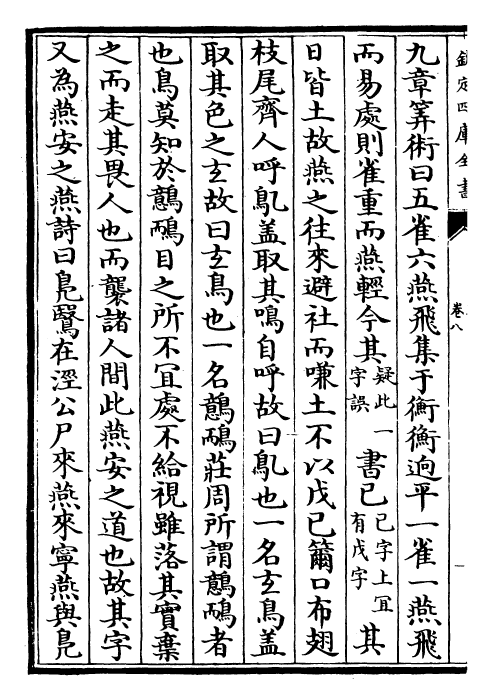 欽定四庫全書
卷八
九章筭術曰五雀六燕飛集于衡衡適平一雀一燕飛
而易處則雀重而燕輕今其疑此字誤一書已已字上宜有戊字其
日皆土故燕之往來避社而嗛土不以戊已籋口布翅
枝尾齊人呼鳦盖取其鳴自呼故曰鳦也一名玄鳥盖
取其色之玄故曰玄鳥也一名鷾鴯莊周所謂鷾鴯者
也鳥莫知於鷾鴯目之所不冝處不給視雖落其實棄
之而走其畏人也而襲諸人間此燕安之道也故其字
又為燕安之燕詩曰鳬鷖在涇公尸來燕來寧燕與鳬